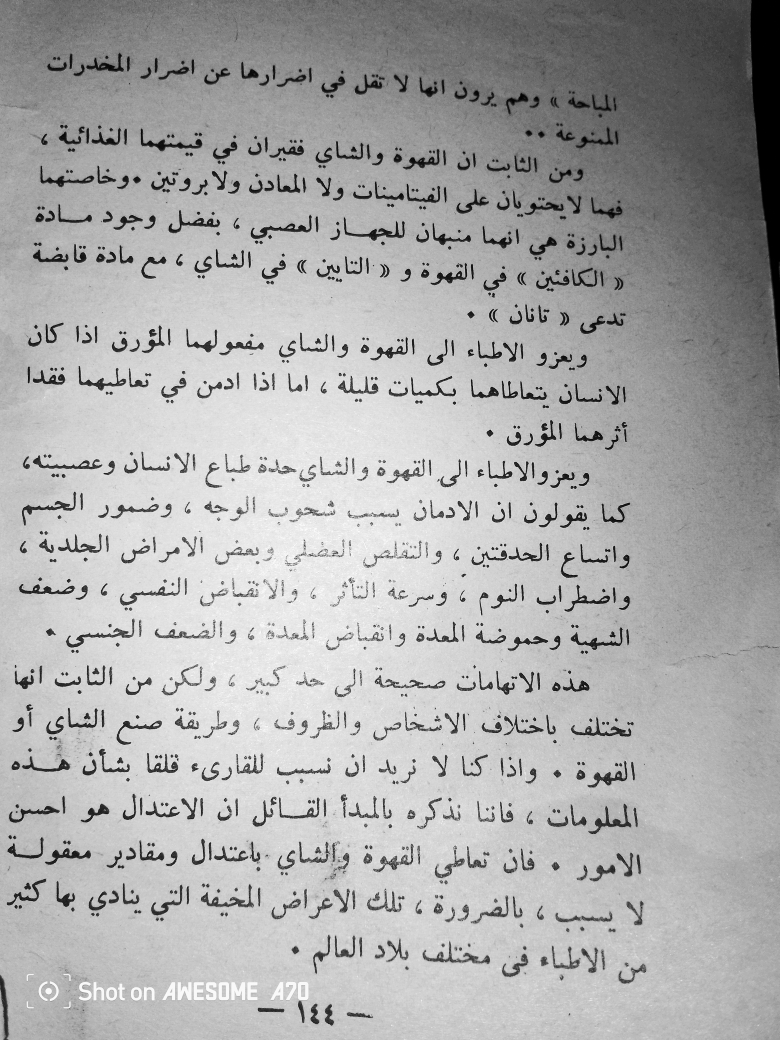 المباحة » وهم يرون انها لا تقل في اضرارها عن اضرار المخدرات
الممنوعة ••
ومن الثابت ان القهوة والشاي فقيران في قيمتهما الغذائية ،
فهما لايحتويان على الفيتامينات ولا المعادن ولابروتين •وخاصتهما
البارزة هي انهما منبهان للجهـــاز العصبي ، بفضل وجود مـــادة
« الكافئين » في القهوة و « التايين » في الشاي ، مع مادة قابضة
تدعى « تانان » •
ويعزو الاطباء الى القهوة والشاي مفعولهما المؤرق اذا كان
الانسان يتعاطاهما بكميات قليلة ، اما اذا ادمن في تعاطيهما فقدا
أثرهما المؤرق •
ويعزوالاطباء الى القهوة والشاي حدة طباع الانسان وعصبيته،
كما يقولون ان الادمان يسبب شحوب الوجه ، وضمور الجسم
واتساع الحدقتين ، والتقلص العضلي وبعض الامراض الجلدية ،
واضطراب النوم ، وسرعة التأثر ، والانقباض النفسي ، وضعف
الشهية وحموضة المعدة وانقباض المعدة ، والضعف الجنسي •
هذه الاتهامات صحيحة الى حد كبير ، ولكن من الثابت انها
تختلف باختلاف الاشخاص والظروف ، وطريقة صنع الشاي أو
القهوة • واذا كنا لا نريد ان نسبب للقارىء قلقا بشأن هـــذه
المعلومات ، فاننا نذكره بالمبدأ القـــائل ان الاعتدال هو احسن
الامور • فان تعاطي القهوة والشاي باعتدال ومقادير معقولـــة
لا يسبب ، بالضرورة ، تلك الاعراض المخيفة التي ينادي بها كثير
من الاطباء في مختلف بلاد العالم •
Shot on AWESOME A70
— ١٤٤ —